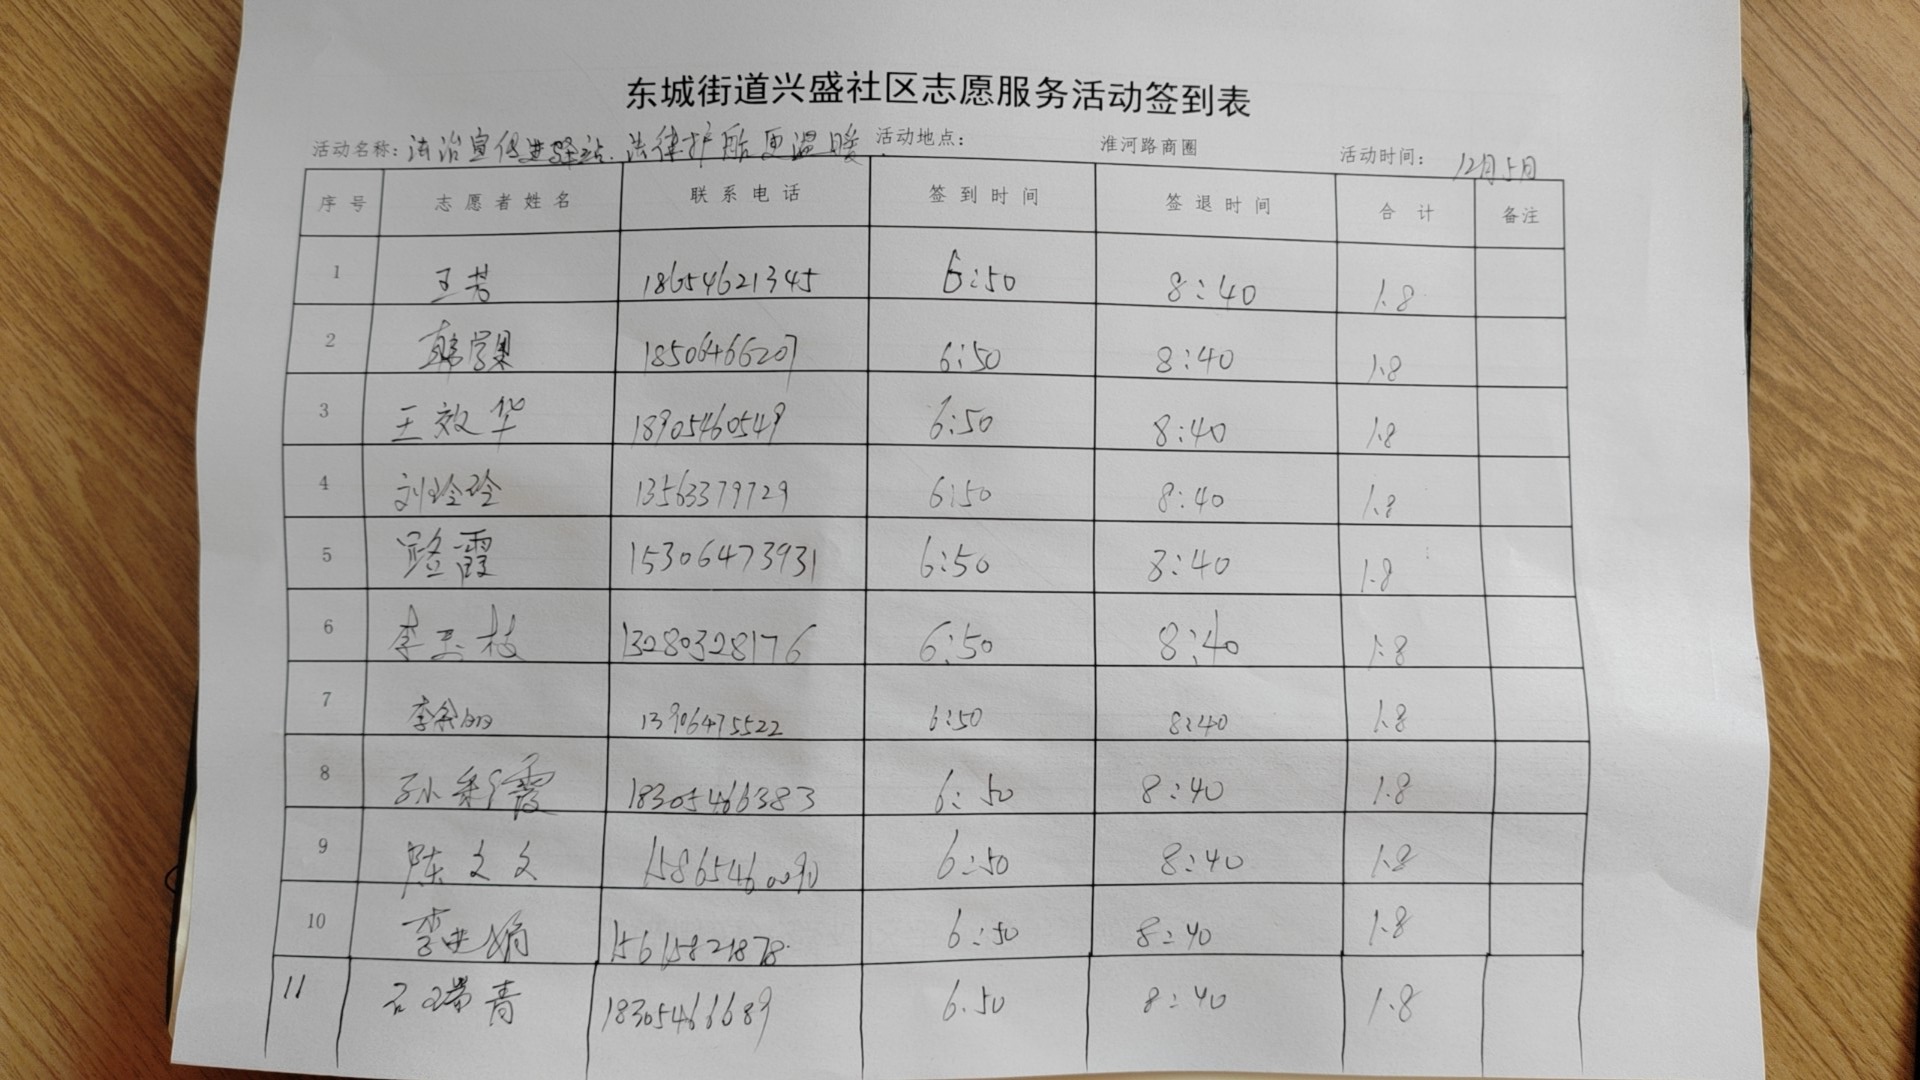 东城街道兴盛社区志愿服务活动签到表
活动名称：法治宣传进驿站.法律护航更温暖 活动地点： 淮河路商圈 活动时间： 12月5日
序号 志愿者姓名 联系电话 签到时间 签退时间 合计 备注
1 王芳 18654621345 6:50 8:40 1.8
2 韩学果 18506466207 6:50 8:40 1.8
3 王效华 18905460549 6:50 8:40 1.8
4 刘玲玲 13563379729 6:50 8:40 1.8
5 路霞 15306473931 6:50 8:40 1.8
6 李玉枝 13280328176 6:50 8:40 1.8
7 李 13906475522 6:50 8:40 1.8
8 孙彩霞 18305466383 6:50 8:40 1.8
9 陈文文 15865460090 6:50 8:40 1.8
10 李进娟 15615821878 6:50 8:40 1.8
11 石瑞青 18305466689 6.50 8:40 1.8